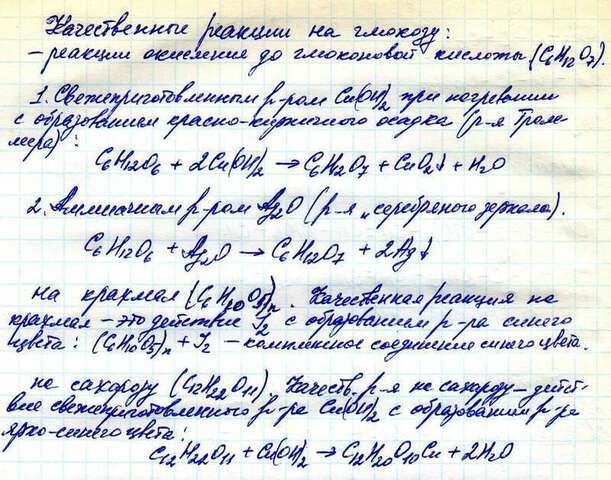 Качественные реакции на глюкозу:
– реакции окисления до глюконовой кислоты (C6H12O7).
1. Свежеприготовленным р-ром Cu(OH)2 при нагревании
с образованием красно-кирпичного осадка (р-я Тром-
мера):
C6H12O6 + 2Cu(OH)2 → C6H12O7 + CuO2↓ + H2O
2. Аммиачным р-ром Ag2O (р-я „серебряного зеркала).
C6H12O6 + Ag2O → C6H12O7 + 2Ag↓
на крахмал (C6H10O5)n. Качественная реакция на
крахмал – это действие I2 с образованием р-ра синего
цвета: (C6H10O5)n + I2 – комплексное соединение синего цвета.
на сахарозу (C12H22O11). Качеств. р-я на сахарозу – дейст-
вие свежеприготовленного р-ра Cu(OH)2 с образованием р-ра
ярко-синего цвета:
C12H22O11 + Cu(OH)2 → C12H20O10Cu + 2H2O